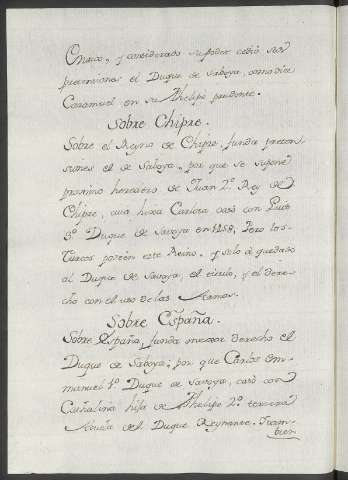 Chipre, y considerado su poder cedió sus
pretensiones el Duque de Saboya, como dice
Caramuel en su Phelipe prudente.
Sobre Chipre.
Sobre el Reyno de Chipre, funda preten-
siones el de Saboya, por que se supone
proximo heredero de Juan 2º Rey de
Chipre, cuia hixa Carlota casó con Luis
3º Duque de Savoya en 1458, Pero los
Turcos poseen este Reino, y solo à quedado
al Duque de Savoya, el titulo, y el dere-
cho con el uso de las Armas.
Sobre España.
Sobre España, funda mexor derecho el
Duque de Saboya, por que Carlos Em-
manuel 1º Duque de Savoya, casó con
Cathalina hija de Phelipe 2º tercera
Abuela del Duque Reynante. Tam-
bien